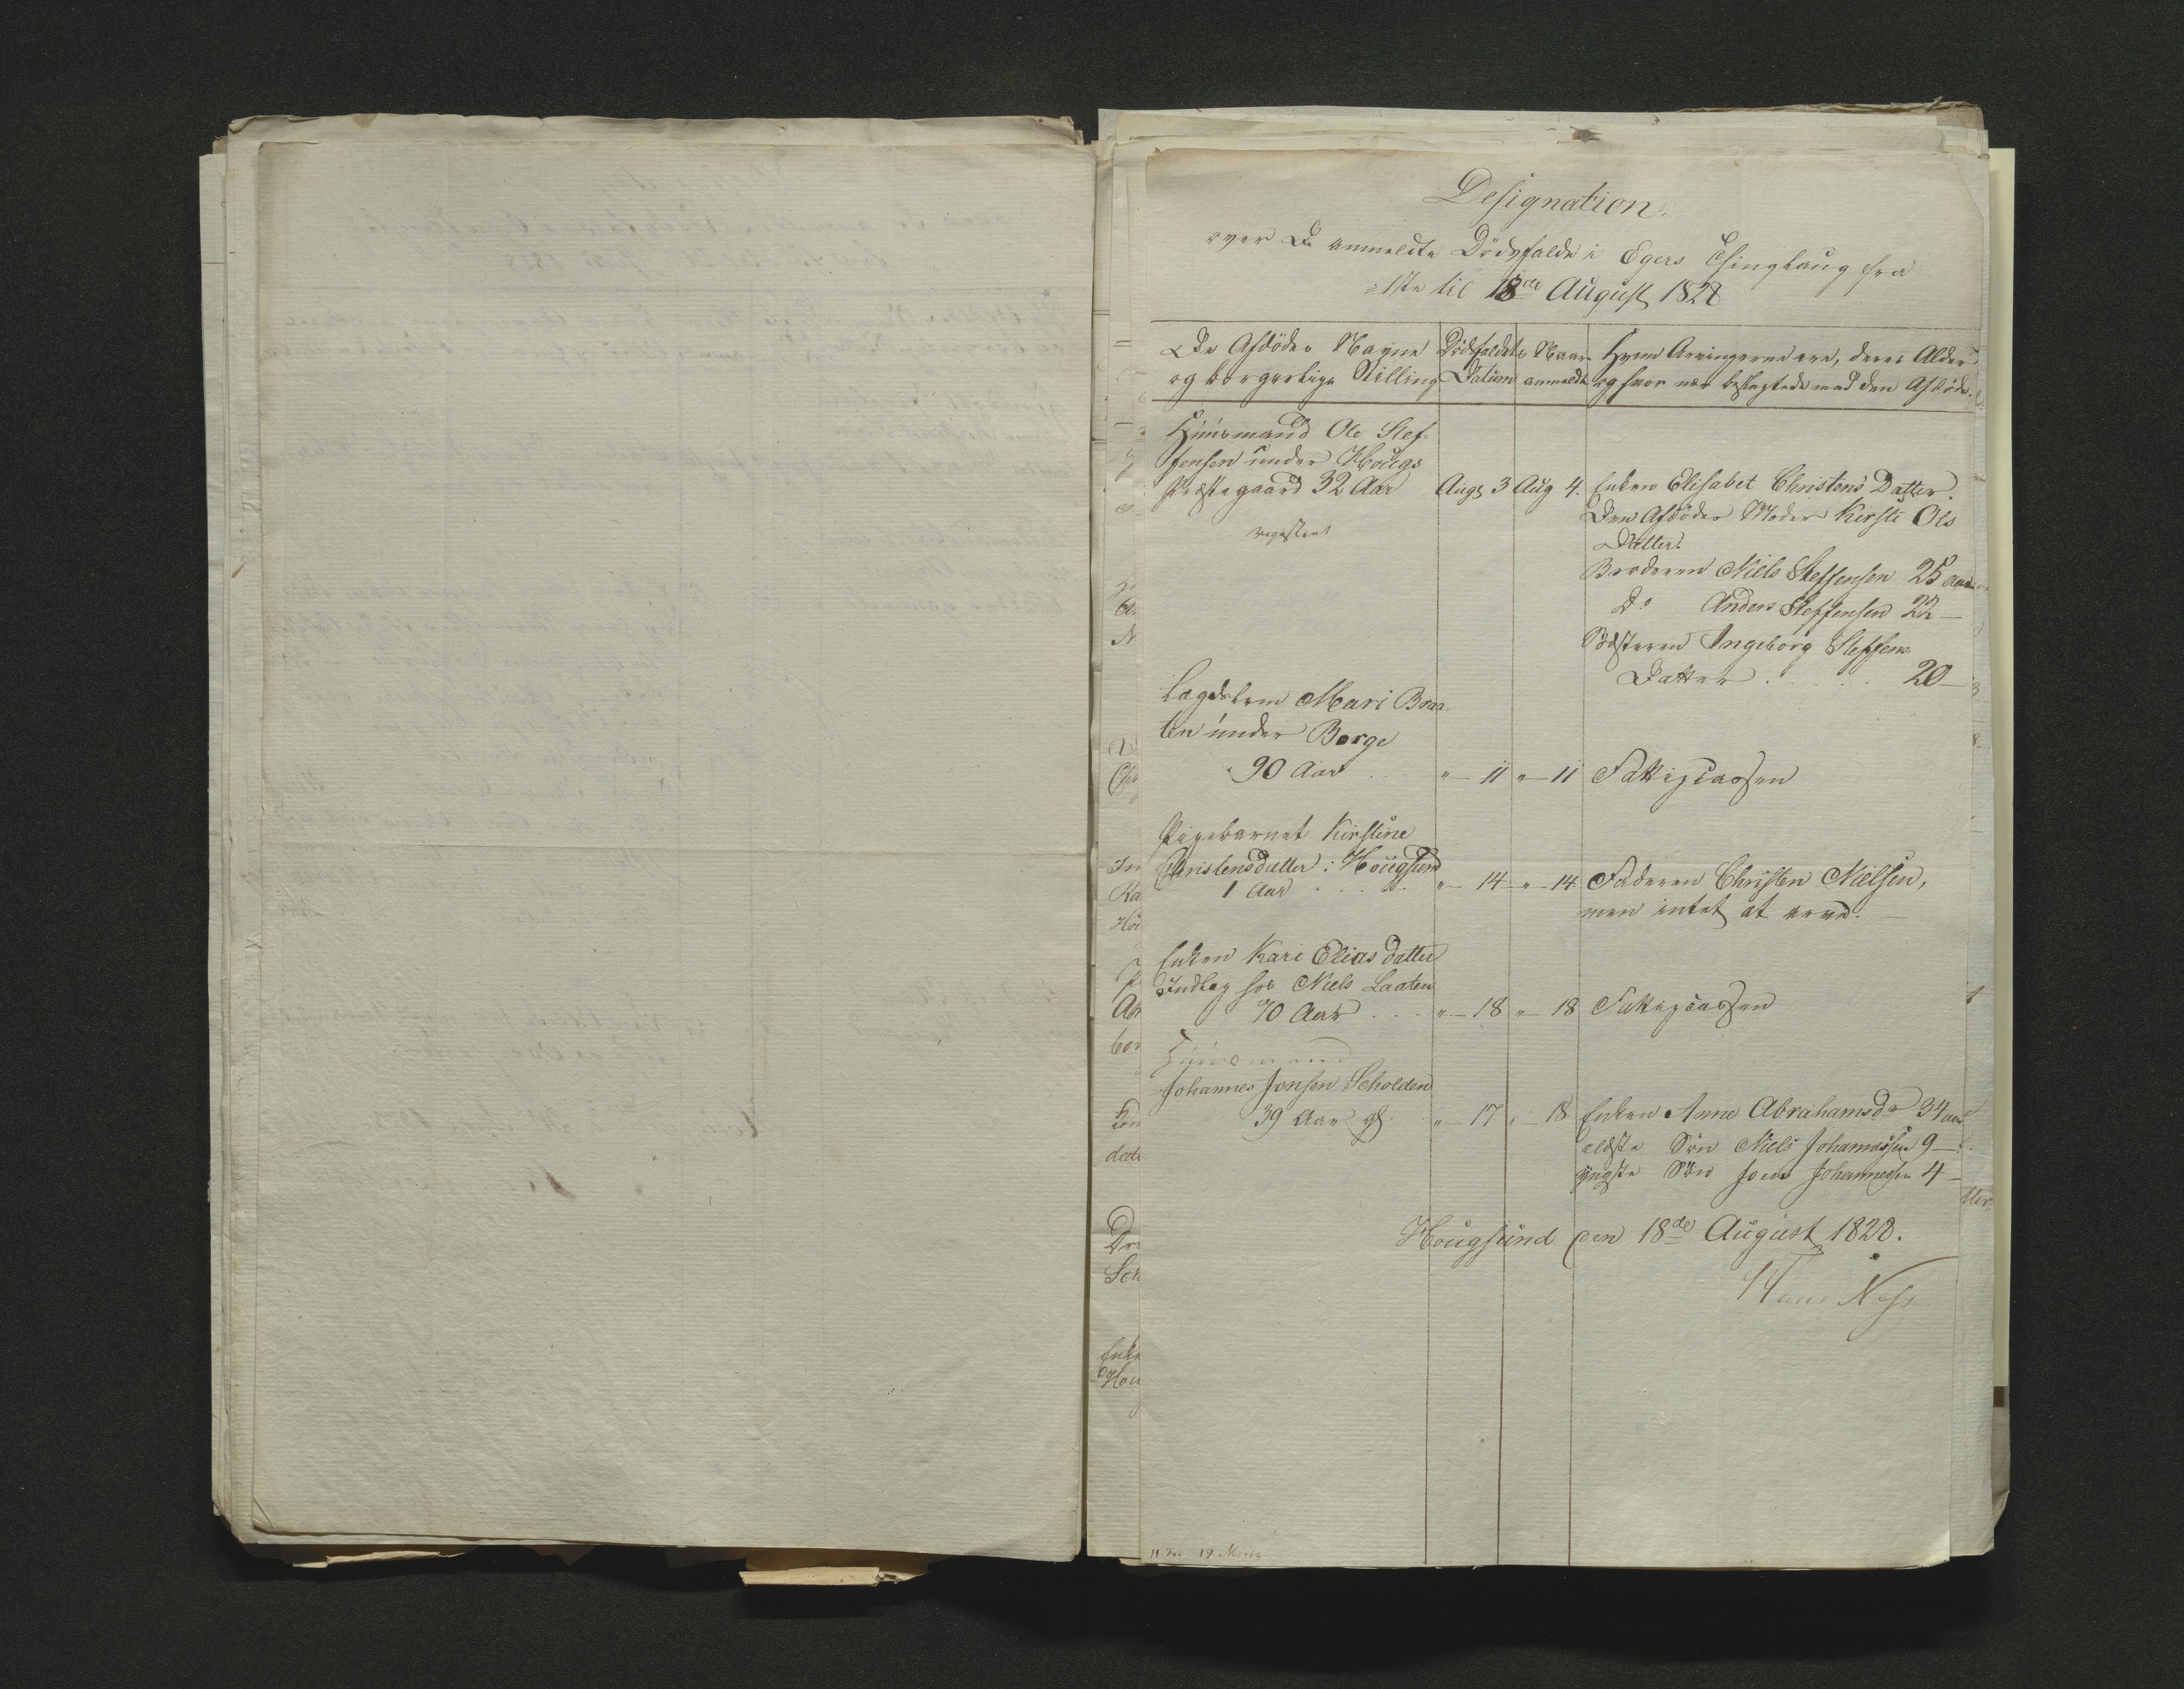 Designation
over De anmeldte Dødsfalde i Egers Thinglaug fra
1ste til 18de August 1828
De Afdødes Navne
og borgerlige Stilling
Dødsfaldets
Datum
Naar
anmeldt
Hvem Arvingerne ere, deres Alder
og hvor nær beslegtede med den Afdøde.
Huusmand Ole Stef-
fensen under Hougs
Præstegaard 32 Aar
Augs 3
Aug 4.
Enken Elisabet Christens Datter.
Den Afdødes Moder Kirsti Ols
Datter.
registeret
Broderen Niels Steffensen 25 aar
Do Anders Steffensen 22 —
Søsteren Ingeborg Steffens
Datter . . . . . 20 —
Lægdslem Mari Braa-
ten under Borge
90 Aar . . .
" — 11
" — 11
Fattigcassen
Pigebarnet Kirstine
Christensdatter i Hougsund
1 Aar . . . . .
" — 14
" — 14
Faderen Christen Nielsen,
men intet at arve. —
Enken Kari Elias datter
Indlag hos Niels Laaten
70 Aar . . .
" — 18
" — 18
Fattigcassen
Huusmand
Johannes Jonsen Scholden
39 Aar gl.
" — 17
" — 18
Enken Anne Abrahamsdr 34 aar
ældste Søn Niels Johannessen 9 —
yngste Søn Jons Johannessen 4 —
Hougsund den 18de August 1828.
Hans Ness